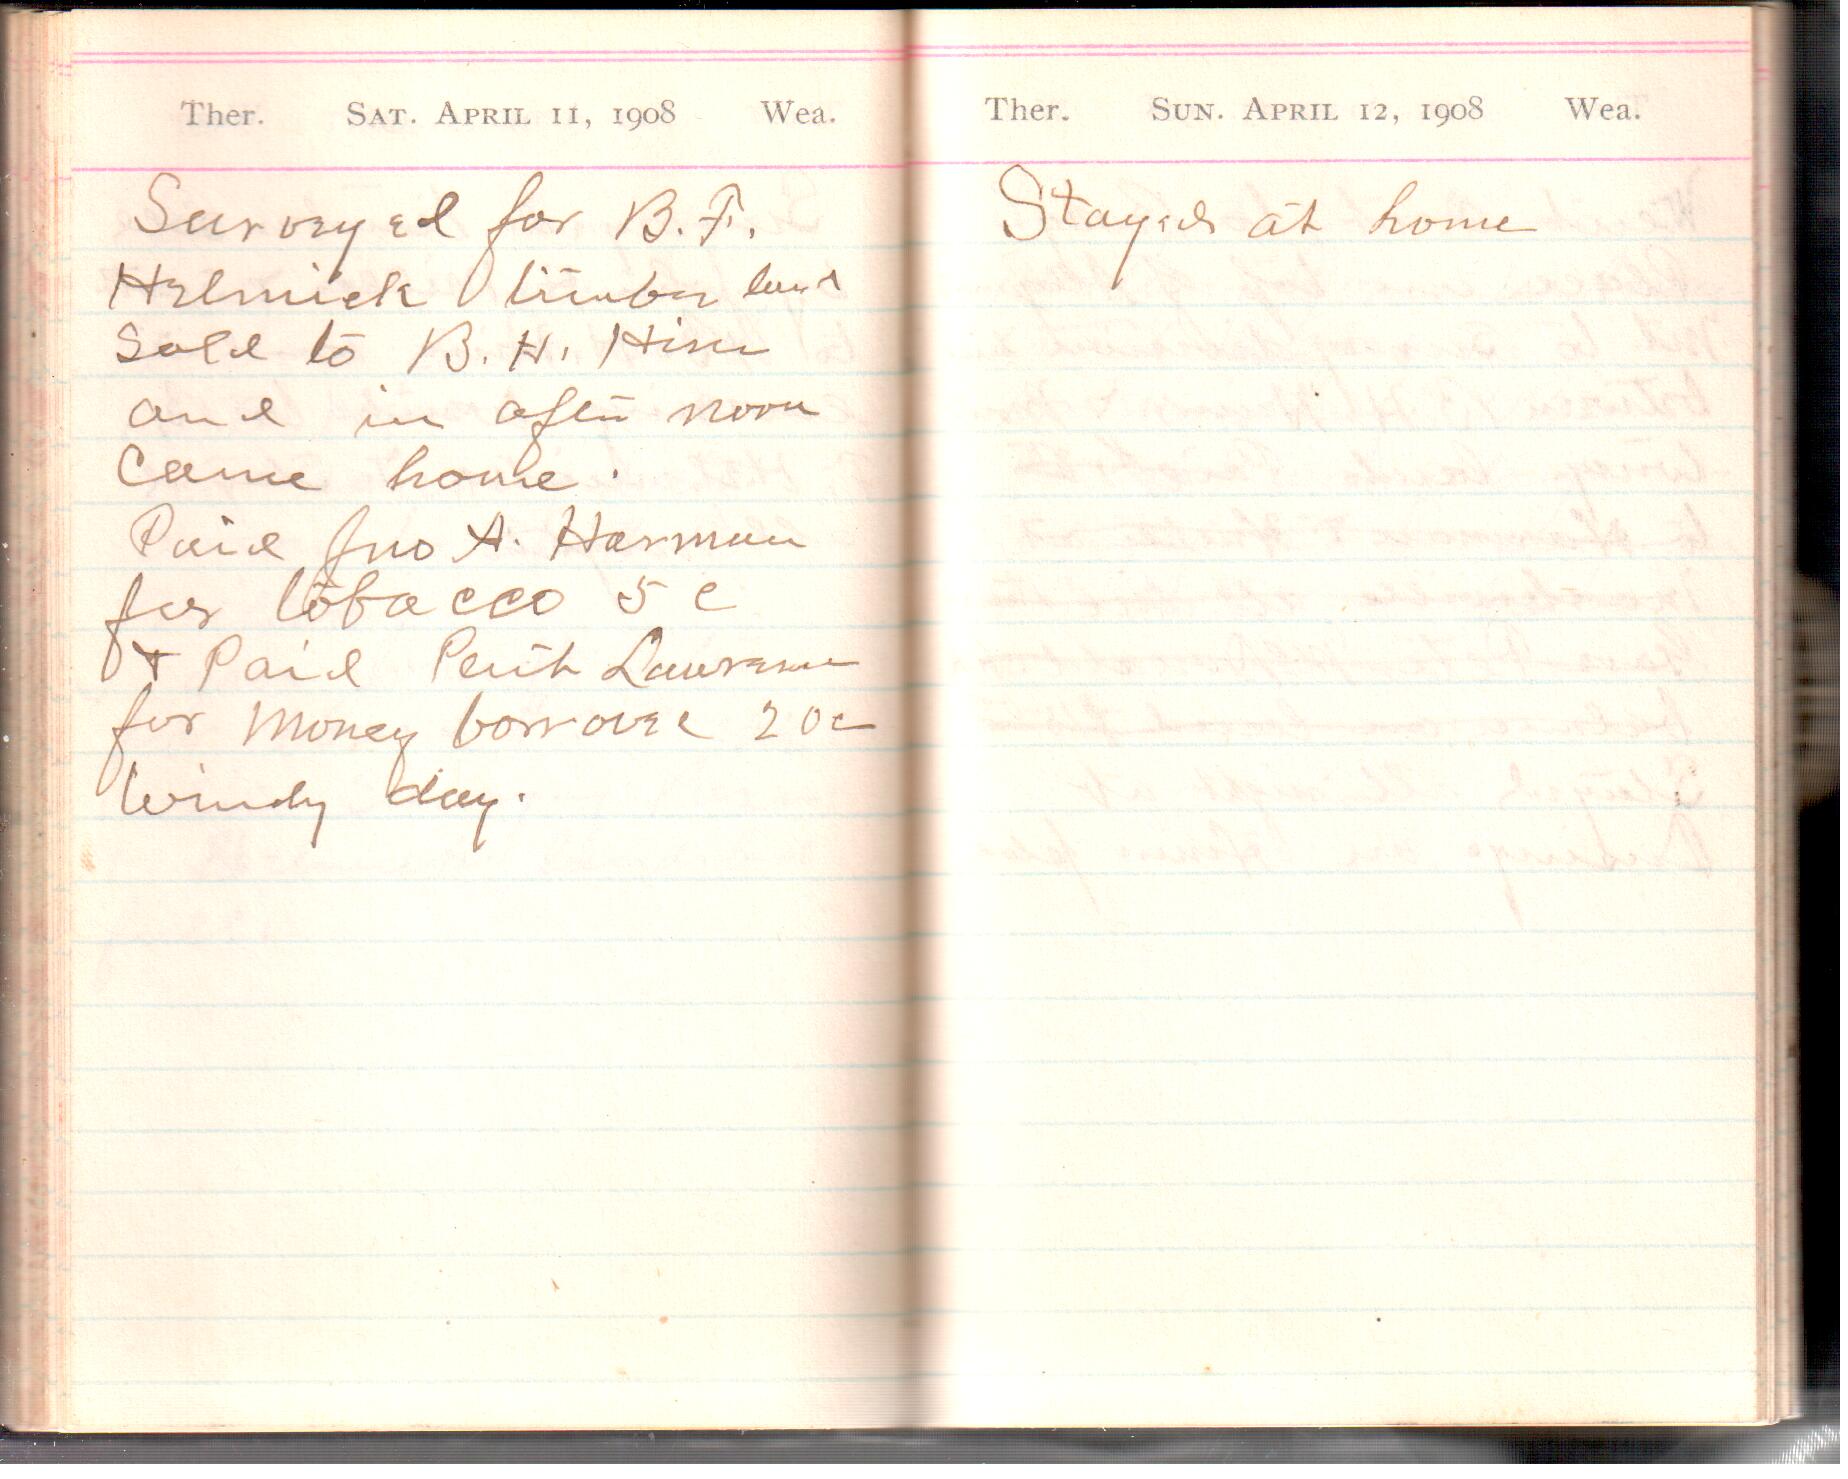 Ther. Sat. April 11, 1908 Wea.
Surveyed for B.F.
Helmick timber land
Sold to B. H. Hiner
and in after noon
Came home.
Paid Jno A. Harman
for tobacco 5 c
& Paid Lawrence
for Money borrowed 20c
Windy day.
Ther. Sun. April 12, 1908 Wea.
Stayed at home